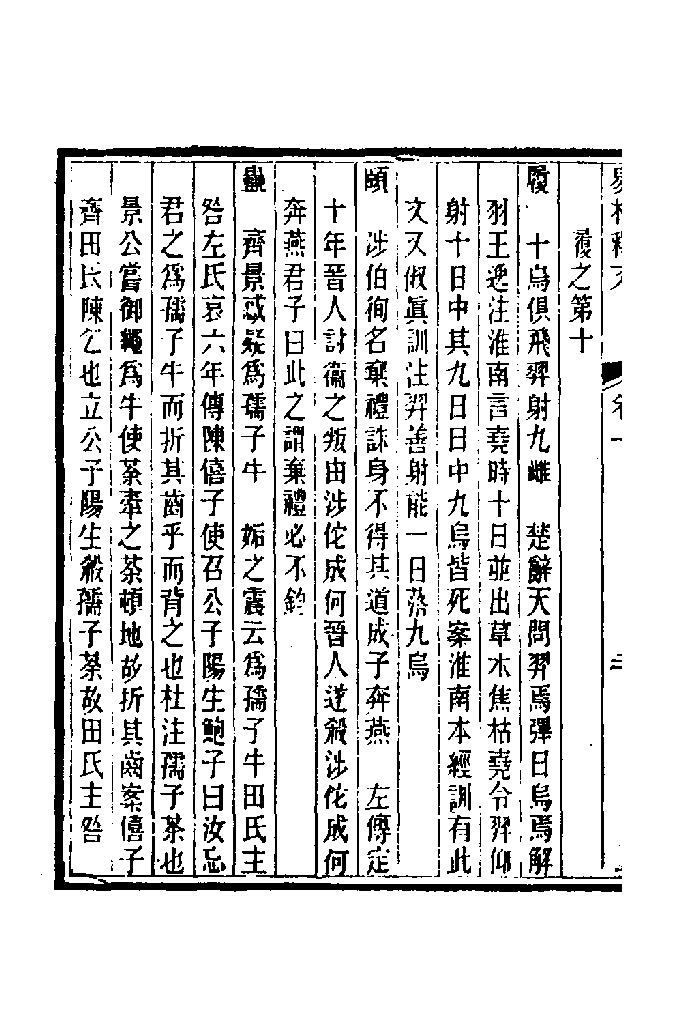 易林釋文 卷一 二
履之第十
履 十烏俱飛羿射九雌 楚辭天問羿焉彈日烏焉解
羽王逸注淮南言堯時十日並出草木焦枯堯令羿仰
射十日中其九日日中九烏皆死案淮南本經訓有此
文又俶眞訓注羿善射能一日落九烏
頤 涉伯徇名棄禮誅身不得其道成子奔燕 左傳定
十年晉人討衞之叛由涉佗成何晉人遂殺涉佗成何
奔燕君子曰此之謂棄禮必不鈞
蠱 齊景惑疑爲孺子牛 姤之震云爲孺子牛田氏主
咎左氏哀六年傳陳僖子使召公子陽生鮑子曰汝忘
君之爲孺子牛而折其齒乎而背之也杜注孺子荼也
景公嘗御繩爲牛使荼牽之荼頓地故折其齒案僖子
齊田氏陳乞也立公子陽生殺孺子荼故田氏主咎